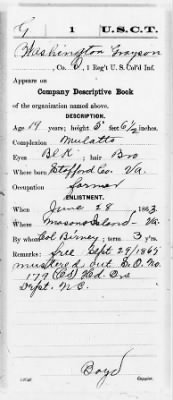 G 1 U.S.C.T.
Washington Grayson
, Co. G, 1 Reg't U. S. Col'd Inf.
Appears on
Company Descriptive Book
of the organization named above.
DESCRIPTION.
Age 19 years; height 5 feet 6½ inches.
Complexion Mulatto
Eyes Blk ; hair Bro
Where born Stafford Co. Va.
Occupation farmer
ENLISTMENT.
When June 28 , 1863.
Where Masons Island Va.
By whom Col Birney ; term 3 y'rs.
Remarks: free Sept 29/1865
mustered out S.O. No.
179 (CS) Hd. Qrs
Dept. N.C.
Boyd
Copyist.